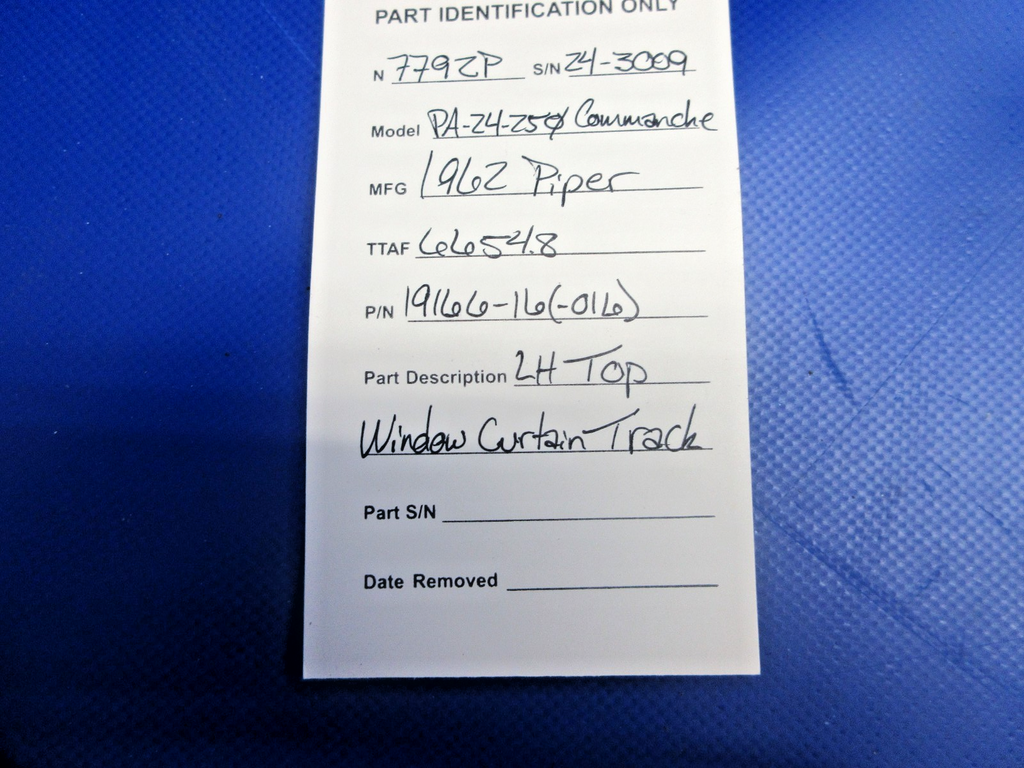 PART IDENTIFICATION ONLY
N 7792P S/N 24-3009
Model PA-24-250 Commanche
MFG 1962 Piper
TTAF 6654.8
P/N 19166-16(-016)
Part Description LH Top
Window Curtain Track
Part S/N
Date Removed